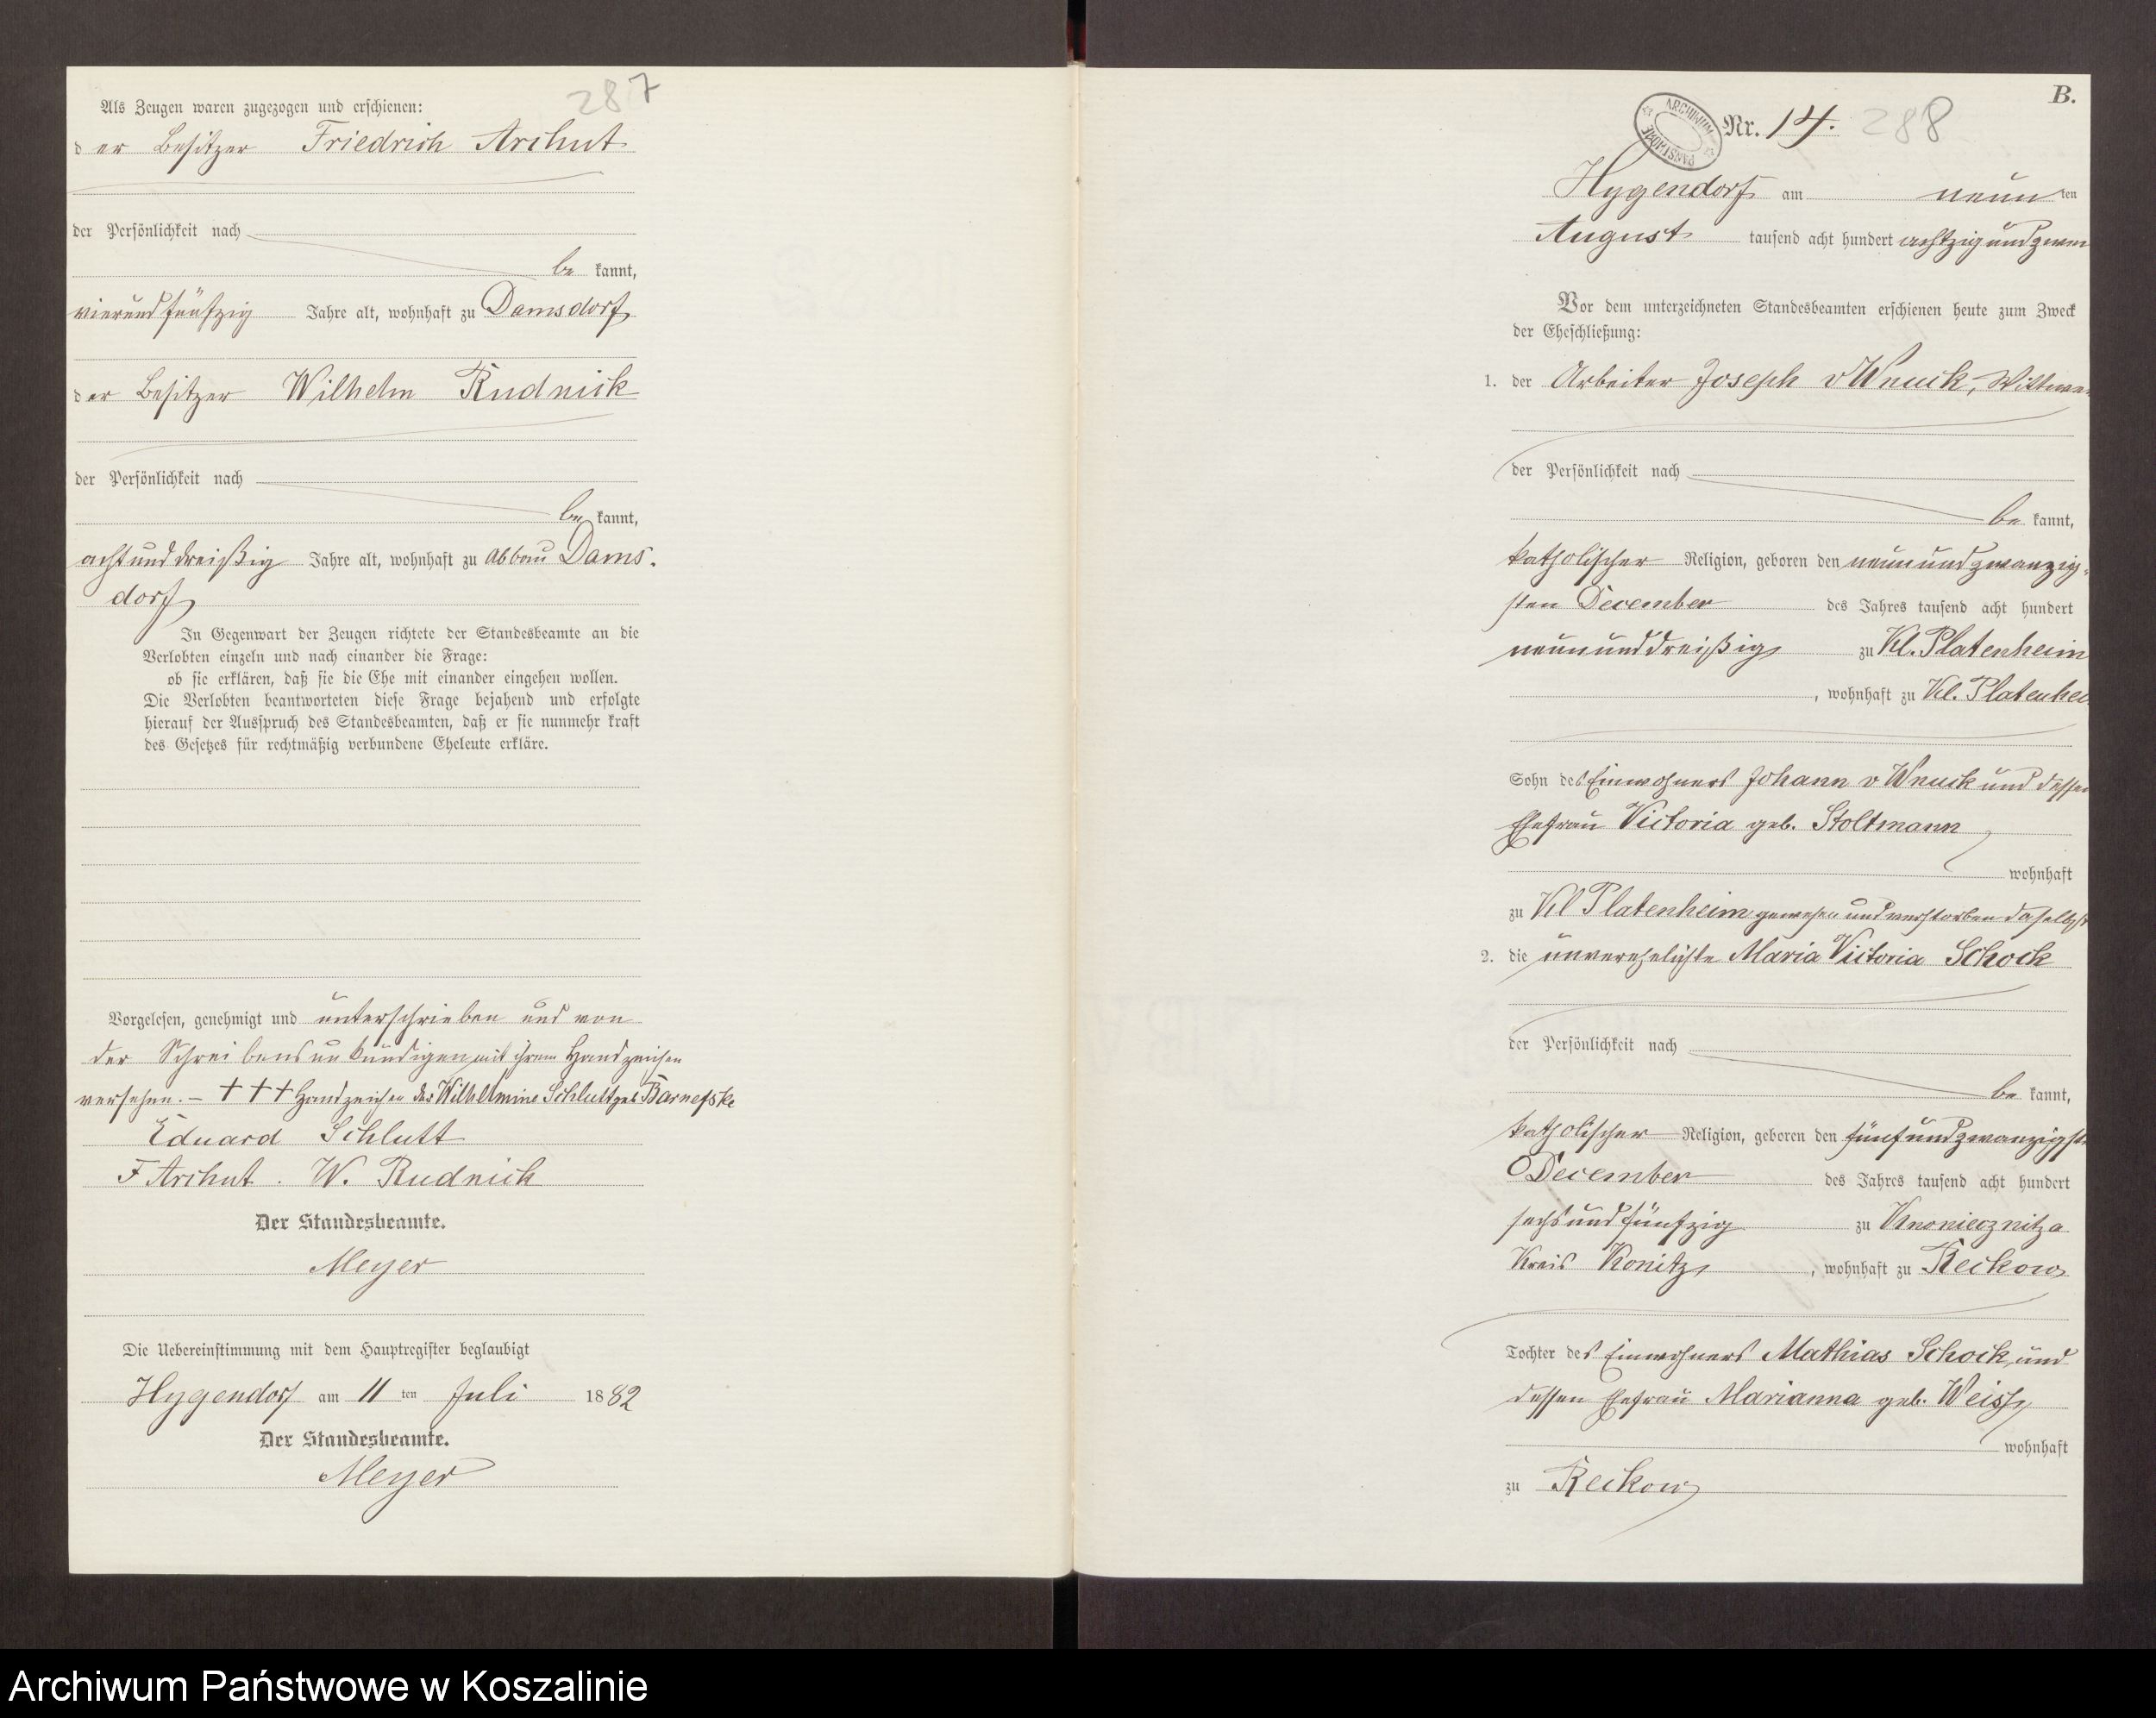 287
Als Zeugen waren zugezogen und erschienen:
der Besitzer Friedrich Archut
der Persönlichkeit nach
be kannt,
vierundfünfzig Jahre alt, wohnhaft zu Damsdorf
der Besitzer Wilhelm Rudnick
der Persönlichkeit nach
be kannt,
achtunddreißig Jahre alt, wohnhaft zu Abbau Dams-
dorf
In Gegenwart der Zeugen richtete der Standesbeamte an die
Verlobten einzeln und nach einander die Frage:
ob sie erklären, daß sie die Ehe mit einander eingehen wollen.
Die Verlobten beantworteten diese Frage bejahend und erfolgte
hierauf der Ausspruch des Standesbeamten, daß er sie nunmehr kraft
des Gesetzes für rechtmäßig verbundene Eheleute erkläre.
Vorgelesen, genehmigt und unterschrieben und von
der Schreibensunkundigen mit ihrem Handzeichen
versehen. – + + + Handzeichen der Wilhelmine Schlutt geb Barnefske
Eduard Schlutt
F Archut. W. Rudnick
Der Standesbeamte.
Meyer
Die Uebereinstimmung mit dem Hauptregister beglaubigt
Hygendorf am 11 ten Juli 1882
Der Standesbeamte.
Meyer
B.
ARCHIWUM PAŃSTWOWE
Nr. 14. 288
Hygendorf am neun ten
August tausend acht hundert achtzig und zwei
Vor dem unterzeichneten Standesbeamten erschienen heute zum Zweck
der Eheschließung:
1. der Arbeiter Joseph v Wnuck, Wittwer
der Persönlichkeit nach
be kannt,
katholischer Religion, geboren den neunundzwanzig-
sten December des Jahres tausend acht hundert
neununddreißig zu Kl. Platenheim
, wohnhaft zu Kl. Platenhei
Sohn des Einwohners Johann v Wnuck und dessen
Ehefrau Victoria geb. Stoltmann
wohnhaft
zu Kl Platenheim gewesen und verstorben daselbst
2. die unverehelichte Maria Victoria Schock
der Persönlichkeit nach
be kannt,
katholischer Religion, geboren den fünfundzwanzigst
December des Jahres tausend acht hundert
sechsundfünfzig zu Kroniecznitza
Kreis Konitz, wohnhaft zu Reckow
Tochter des Einwohners Mathias Schock und
dessen Ehefrau Marianna geb. Weiss
wohnhaft
zu Reckow
Archiwum Państwowe w Koszalinie